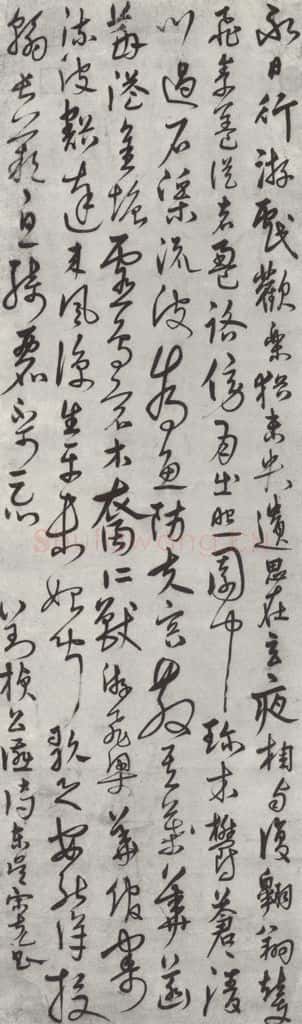 永日行游戲歡樂猶未央遺思在玄夜相與復翱翔輦
飛素蓋從者盈路傍月出照園中珍木鬱蒼蒼清
川過石渠流波為魚防夫容散其華菡
萏溢金塘靈鳥宿水裔仁獸游飛梁華館寄
流波豁達來風涼生平未始聞歌之安能詳投
翰長歎息綺麗不可忘 右劉楨公讌詩東吳宋克書